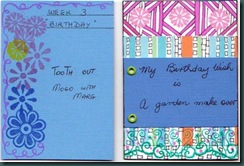 WEEK 3
BIRTHDAY
TOOTH OUT
MOGO WITH
MARG
My Birthday Wish
is
A garden make over